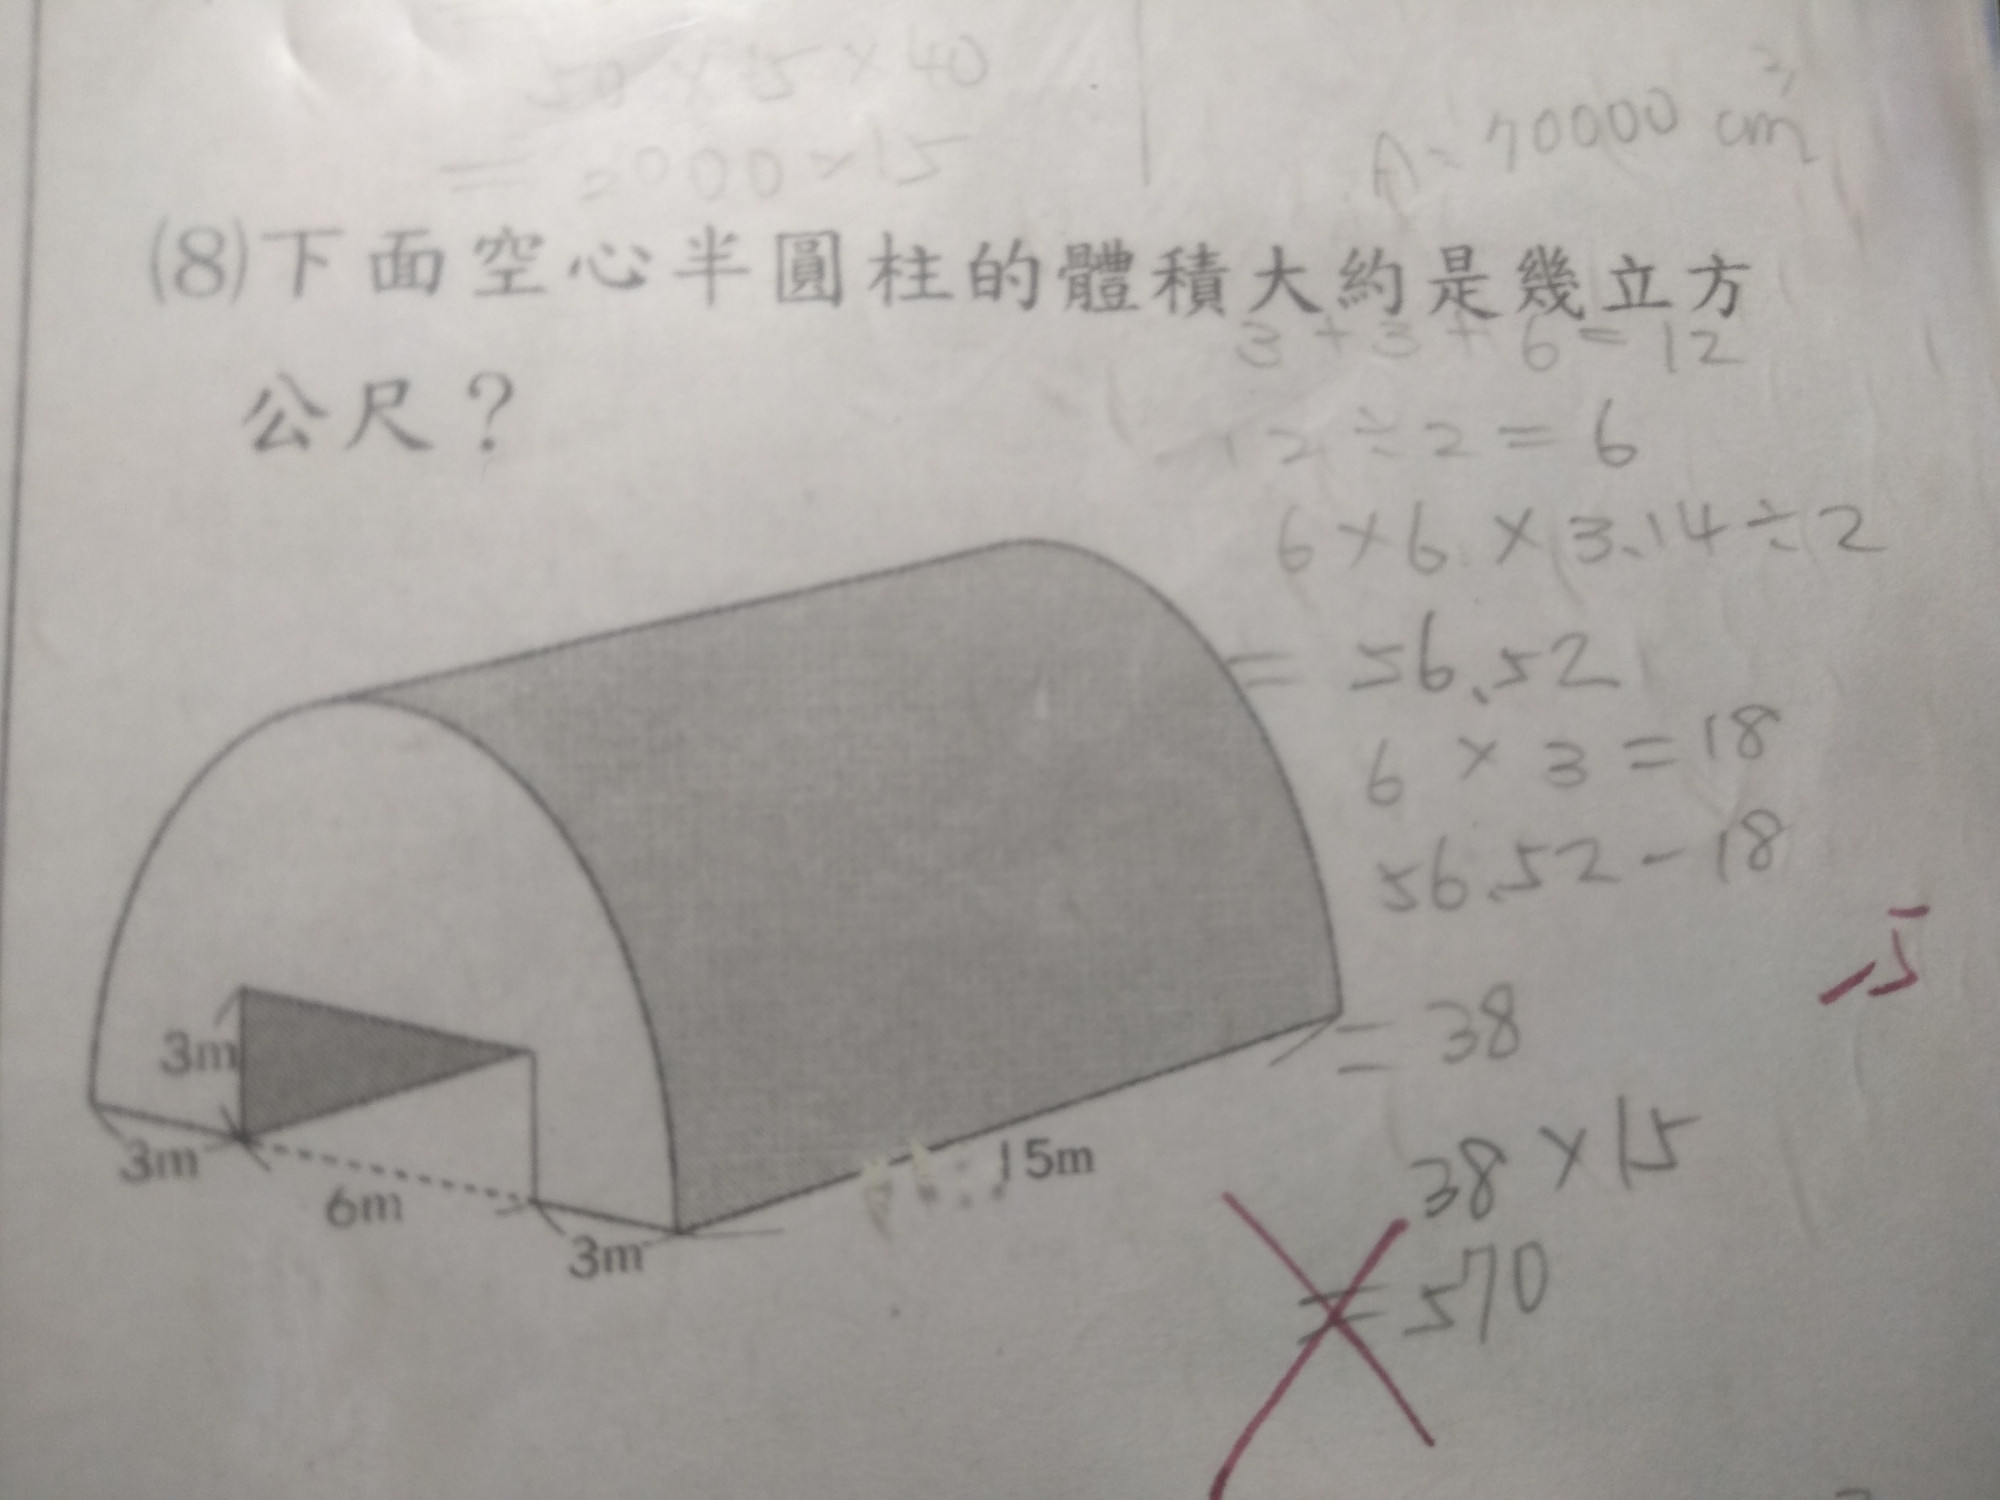 50×15×40
=3000×15
A=70000 cm²
(8)下面空心半圓柱的體積大約是幾立方
公尺？
3+3+6=12
12÷2=6
6×6×3.14÷2
=56.52
6×3=18
56.52-18
-5
=38
38×15
=570
3m
3m
6m
3m
15m